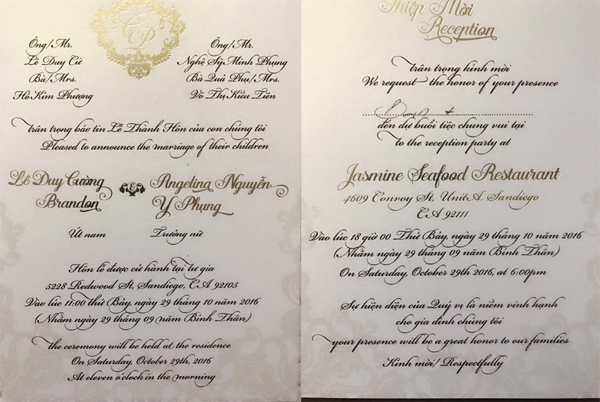 CP
Ông/Mr.
Lê Duy Cứ
Bà/Mrs.
Hồ Kim Phượng
Ông/Mr.
Nghệ Sỹ Minh Phụng
Bà Quả Phụ/Mrs.
Võ Thị Kiều Tiên
trân trọng báo tin Lễ Thành Hôn của con chúng tôi
Pleased to announce the marriage of their children
Lê Duy Cường
Brandon
&
Angelina Nguyễn
Y Phụng
Út nam
Trưởng nữ
Hôn lễ được cử hành tại tư gia
5228 Redwood St, Sandiego, CA 92105
Vào lúc 11:00 thứ Bảy, ngày 29 tháng 10 năm 2016
(Nhằm ngày 29 tháng 09 năm Bính Thân)
the ceremony will be held at the residence
On Saturday, October 29th, 2016
At eleven o'clock in the morning
Thiệp Mời
Reception
trân trọng kính mời
We request the honor of your presence
đến dự buổi tiệc chung vui tại
to the reception party at
Jasmine Seafood Restaurant
4609 Convoy St. Unit A. Sandiego
CA 92111
Vào lúc 18 giờ 00 Thứ Bảy, ngày 29 tháng 10 năm 2016
(Nhằm ngày 29 tháng 09 năm Bính Thân)
On Saturday, October 29th, 2016, at 6:00pm
Sự hiện diện của Quý vị là niềm vinh hạnh
cho gia đình chúng tôi
your presence will be a great honor to our families
Kính mời/ Respectfully